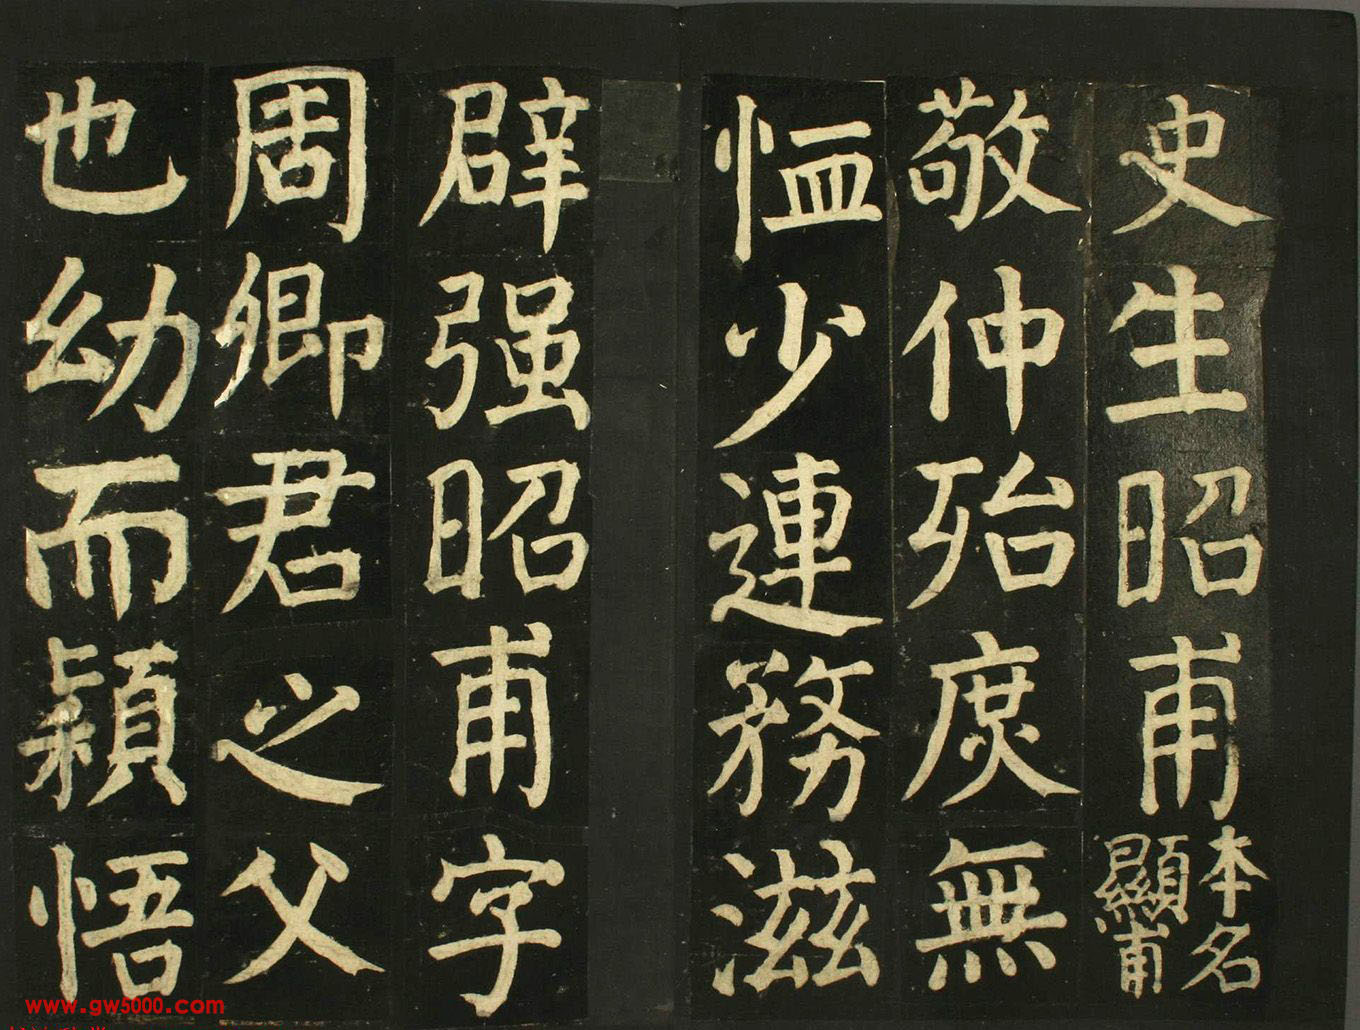 史生昭甫本名顯甫
敬仲殆庶無
恤少連務滋
辟强昭甫字
周卿君之父
也幼而穎悟
www.gw5000.com